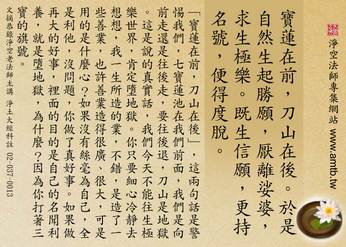 淨空法師專集網站
www.amtb.tw
寶蓮在前，刀山在後。於是
自然生起勝願，厭離娑婆，
求生極樂。既生信願，更持
名號，便得度脫。
「寶蓮在前，刀山在後」，這兩句話是警
惕我們，七寶蓮池在我們前面，我們是向
前走還是往後走，要往後退，刀山是地獄
。這是說的真實話，我們今天不能往生極
樂世界，肯定墮地獄。你只要細心冷靜去
想想，我一生所造的業，不錯，是造了一
些善業，也許善業造得很廣、很大，可是
用的是什麼心？如果沒有絲毫為自己，全
是利他，沒問題，你做了真好事。如果做
再大的好事，裡面的目的是自己的名聞利
養，就是墮地獄，為什麼？因為你打著三
寶的旗號。
文摘恭錄淨空老法師主講 淨土大經科註 02-037-0013